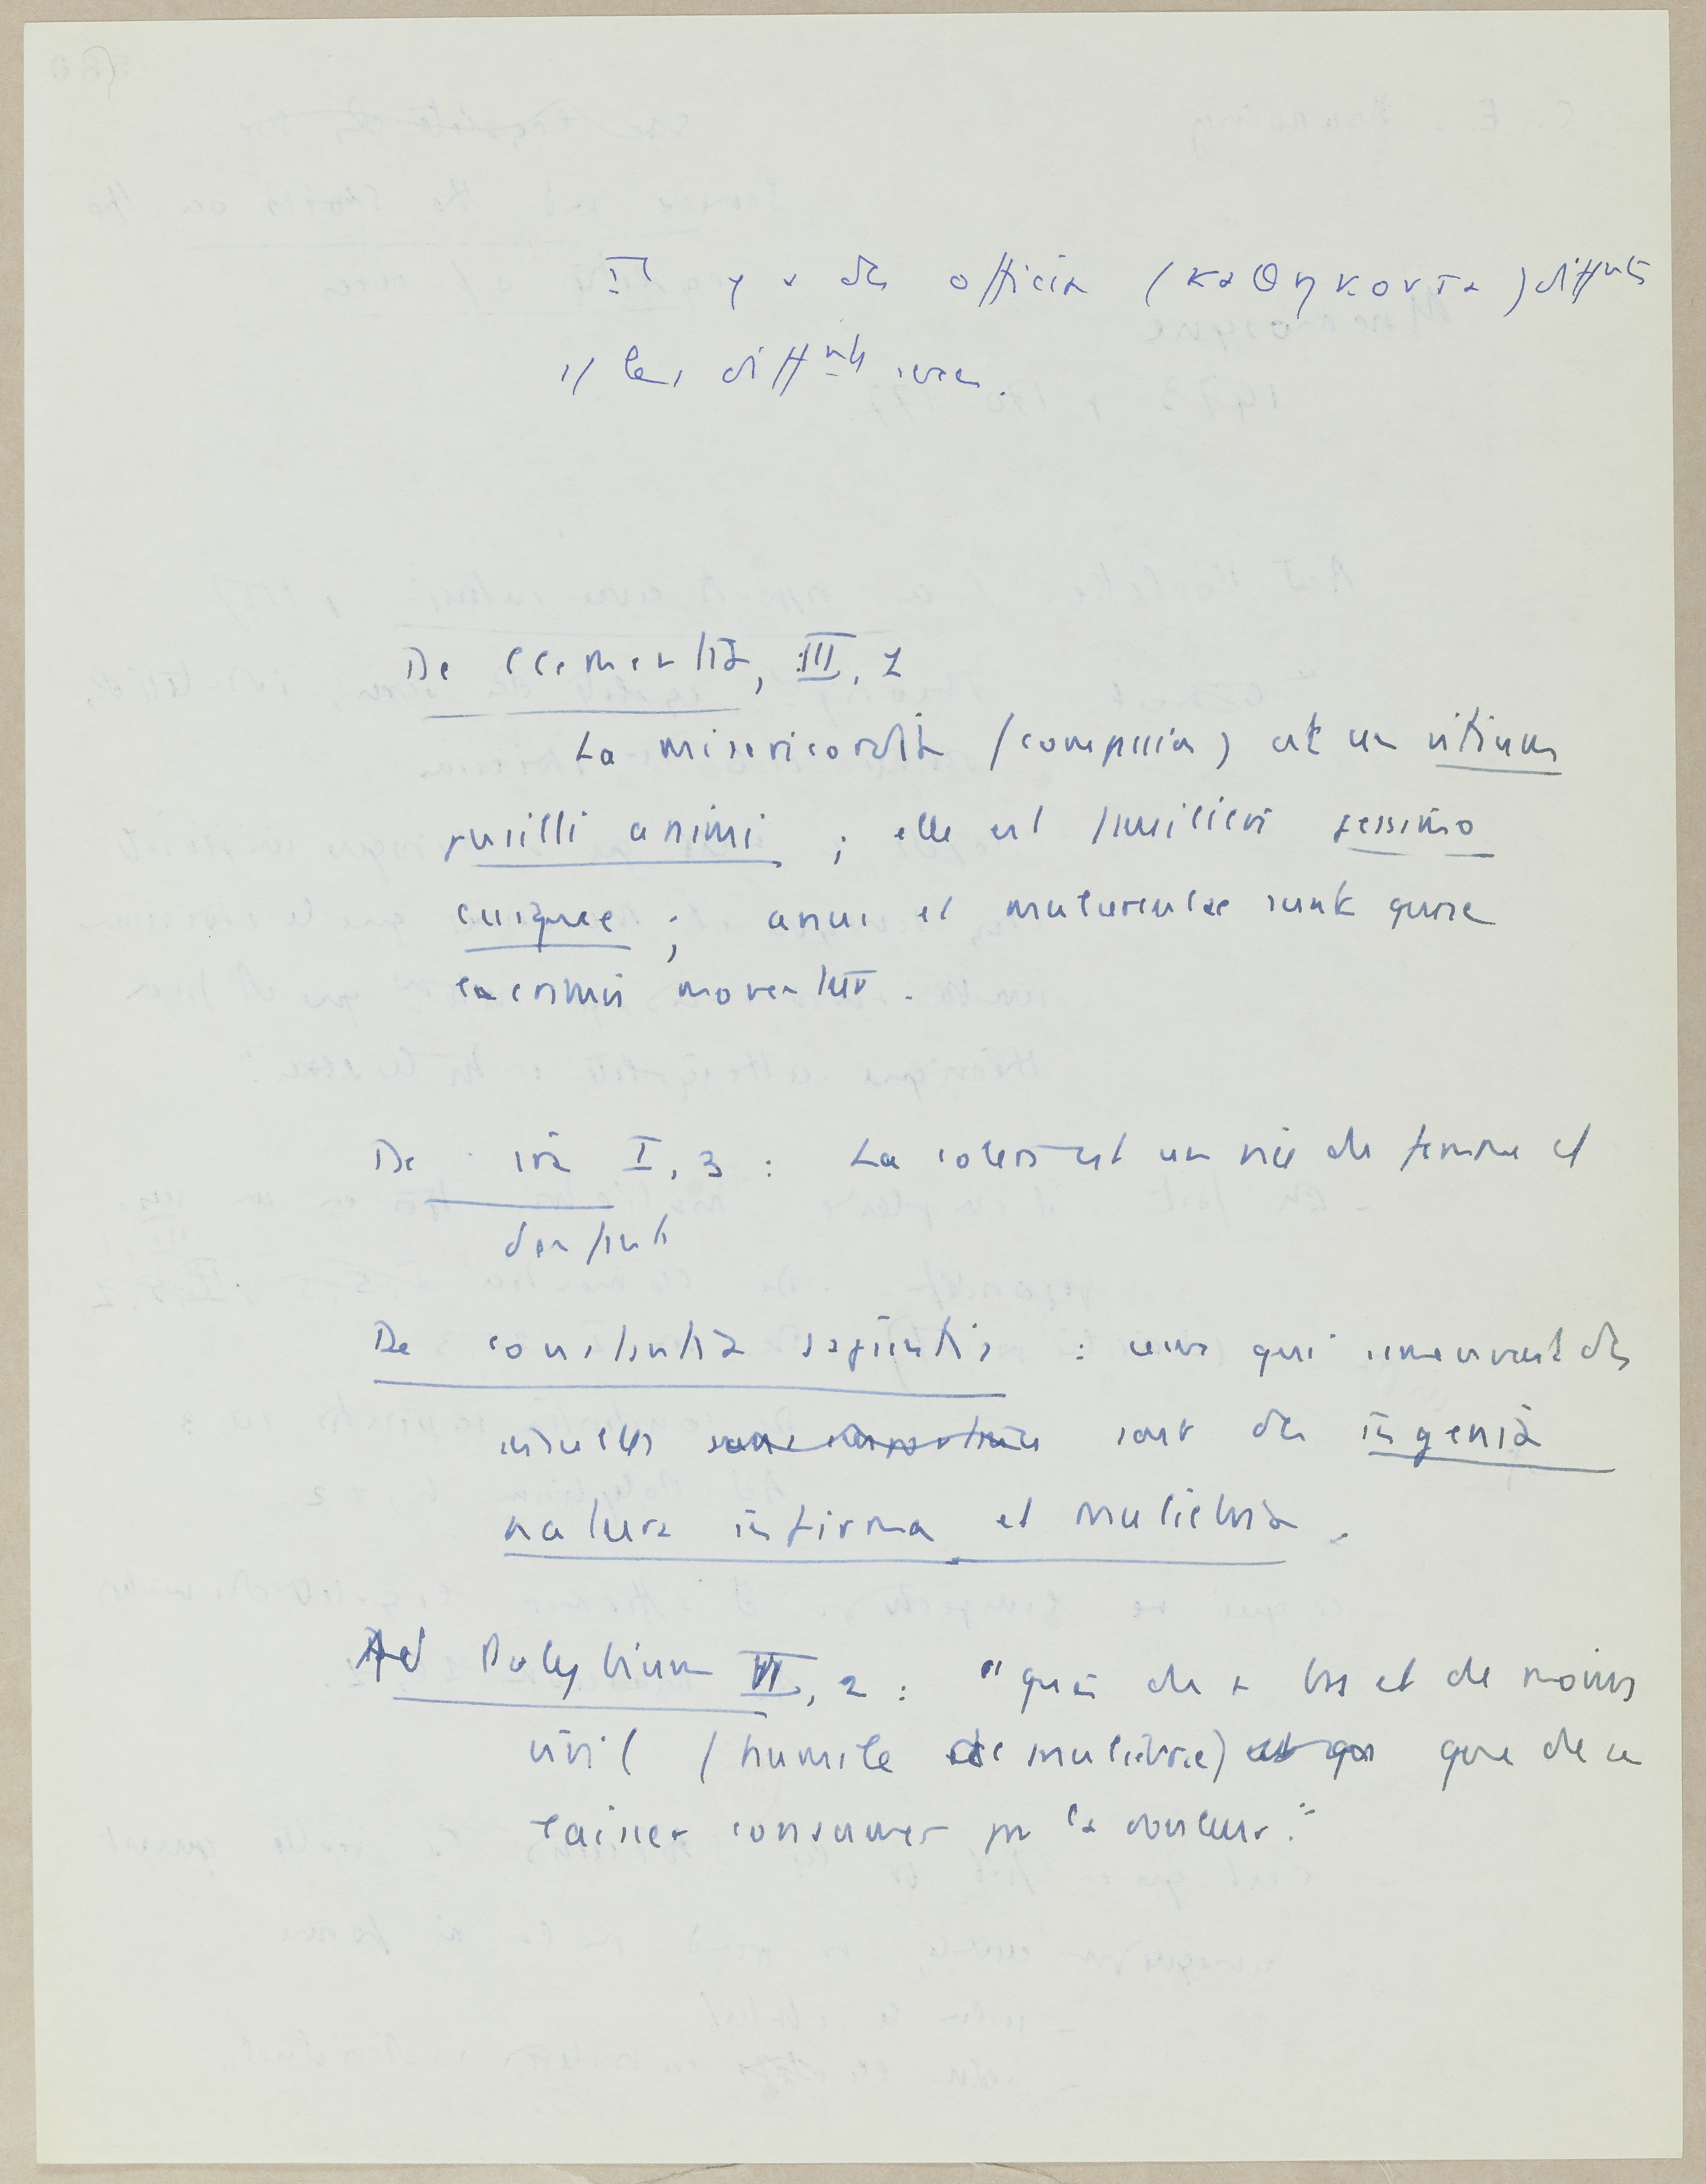 Il y a des officia (καθηκοντα) différents
les différents sexes.
De clementia, III, 2
La misericordia (compassion) est un vitium
pusilli animi ; elle est familière pessimo
cuique ; anus et mulierculae sunt quae
lacrimis moventur.
De ira I, 3 : La colère est un vice de femme et
d'enfants
De constantia sapientis : ceux qui s'émeuvent des
insultes sont des ingenia
natura infirma et muliebria.
Ad Polybium VI, 2 : "quoi de + bas et de moins
viril (humile muliebre) que de se
laisser consumer par la douleur."